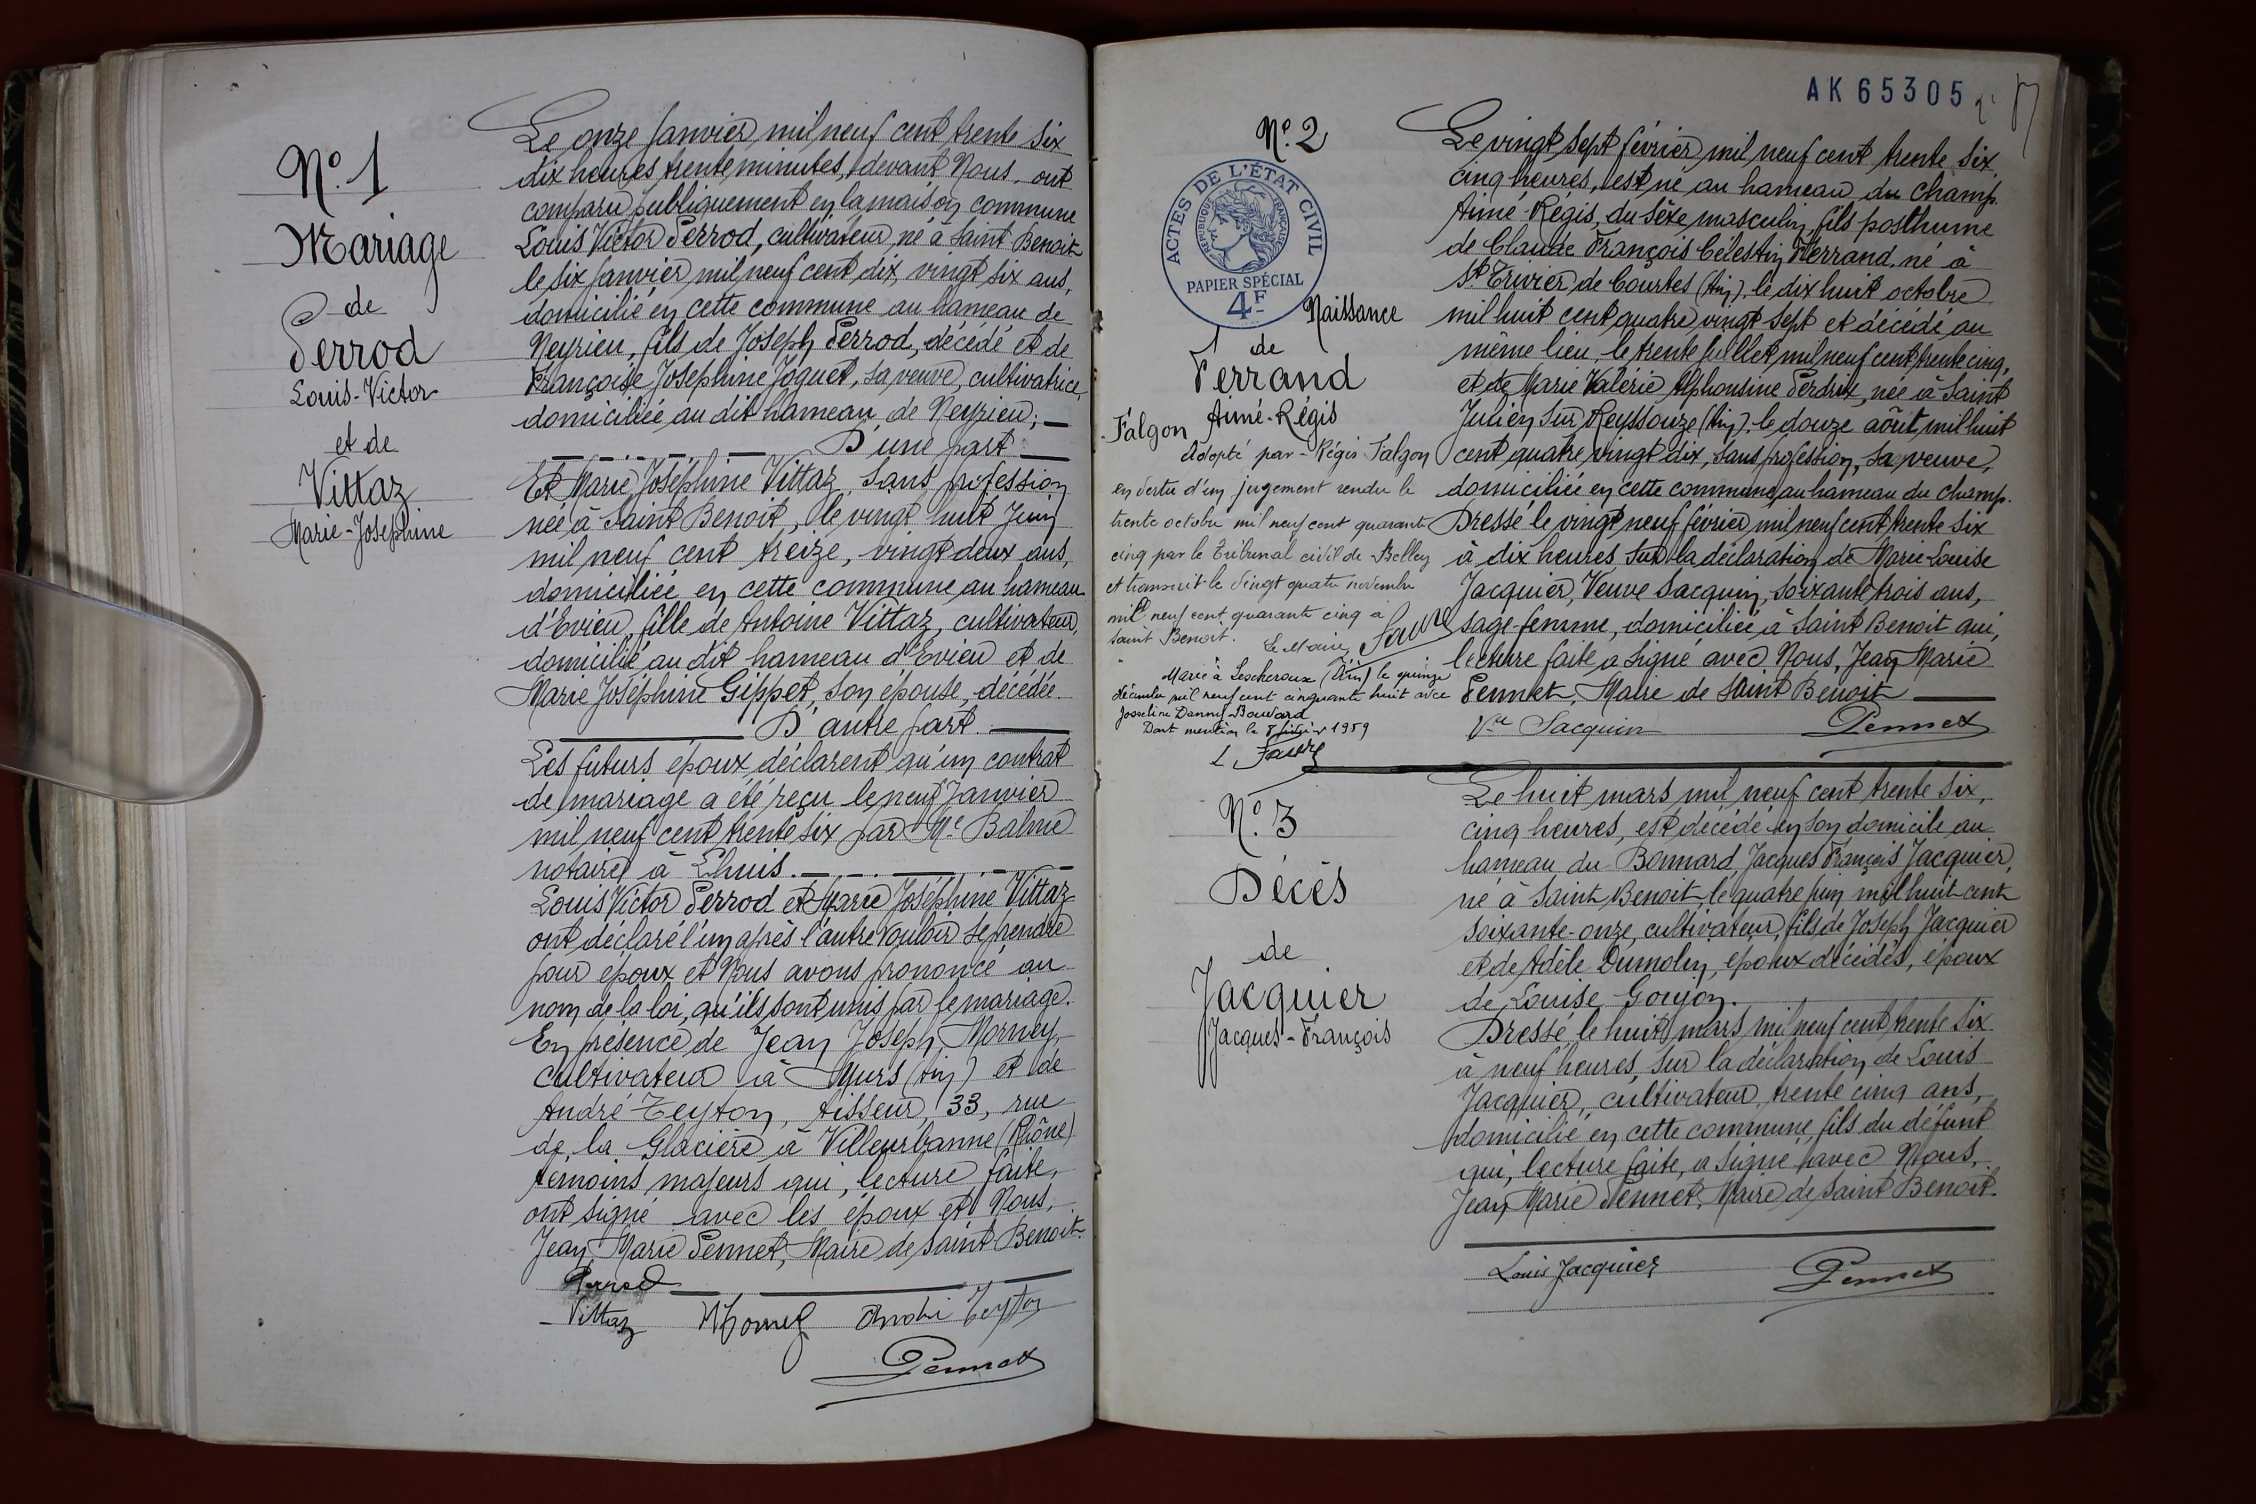 Nº 1
Mariage
de
Perrod
Louis-Victor
et de
Vittaz
Marie-Joséphine
Le onze janvier mil neuf cent trente six
dix heures trente minutes, devant Nous, ont
comparu publiquement en la maison commune
Louis Victor Perrod, cultivateur, né à Saint Benoit
le six janvier mil neuf cent dix, vingt six ans,
domicilié en cette commune au hameau de
Neyrieu, fils de Joseph Perrod, décédé et de
Françoise Joséphine Joguet, sa veuve, cultivatrice,
domiciliée au dit hameau de Neyrieu;
D'une part
Et Marie Joséphine Vittaz, sans profession
née à Saint Benoit, le vingt huit Juin
mil neuf cent treize, vingt deux ans,
domiciliée en cette commune au hameau
d'Evieu, fille de Antoine Vittaz, cultivateur,
domicilié au dit hameau d'Evieu et de
Marie Joséphine Gippet, son épouse, décédée
D'autre part.
Les futurs époux déclarent qu'un contrat
de mariage a été reçu le neuf Janvier
mil neuf cent trente six par Me Balme
notaire à Lhuis.
Louis Victor Perrod et Marie Joséphine Vittaz
ont déclaré l'un après l'autre vouloir se prendre
pour époux et Nous avons prononcé au
nom de la loi, qu'ils sont unis par le mariage.
En présence de Jean Joseph Morney,
cultivateur à Murs (Ain) et de
André Teyton, tisseur, 33, rue
de la Glacière à Villeurbanne (Rhône)
témoins majeurs qui, lecture faite,
ont signé avec les époux et Nous,
Jean Marie Pennet, Maire de Saint Benoit.
Perrod
Vittaz André Teyton
Pennet
AK 65305
Nº 2
ACTES DE L'ÉTAT CIVIL
RÉPUBLIQUE FRANÇAISE
PAPIER SPÉCIAL
4F
Naissance
de
Ferrand
Aimé-Régis
Falgon
Adopté par Régis Falgon
en vertu d'un jugement rendu le
trente octobre mil neuf cent quarante
cinq par le Tribunal civil de Belley
et transcrit le vingt quatre novembre
mil neuf cent quarante cinq à
Saint Benoit. Le Maire,
Marié à Lescheroux (Ain) le quinze
décembre mil neuf cent cinquante huit avec
Josseline Danny Bouvard
Dont mention le 7 février 1959
Le vingt sept février mil neuf cent trente six
cinq heures, est né au hameau du Champ.
Aimé-Régis, du sexe masculin, fils posthume
de Claude François Célestin Ferrand, né à
St Trivier de Courtes (Ain), le dix huit octobre
mil huit cent quatre vingt sept et décédé au
même lieu, le trente juillet mil neuf cent trente cinq,
et de Marie Valérie Alphonsine Perdrix, née à Saint
Julien sur Reyssouze (Ain), le douze août mil huit
cent quatre vingt dix, sans profession, sa veuve,
domiciliée en cette commune, au hameau du Champ.
Dressé le vingt neuf février mil neuf cent trente six
à dix heures, sur la déclaration de Marie Louise
Jacquier, Veuve Sacquin, soixante trois ans,
sage-femme, domiciliée à Saint Benoit qui,
lecture faite a signé avec Nous, Jean Marie
Pennet, Maire de Saint Benoit
Vve Sacquin Pennet
Nº 3
Décès
de
Jacquier
Jacques-François
Le huit mars mil neuf cent trente six,
cinq heures, est décédé en son domicile au
hameau du Bonnard, Jacques François Jacquier,
né à Saint Benoit, le quatre juin mil huit cent
soixante-onze, cultivateur, fils de Joseph Jacquier
et de Adèle Dumolin, époux décédés, époux
de Louise Goujon.
Dressé le huit mars mil neuf cent trente six
à neuf heures, sur la déclaration de Louis
Jacquier, cultivateur, trente cinq ans,
domicilié en cette commune, fils du défunt
qui, lecture faite, a signé avec Nous,
Jean Marie Pennet, Maire de Saint Benoit.
Louis Jacquier Pennet